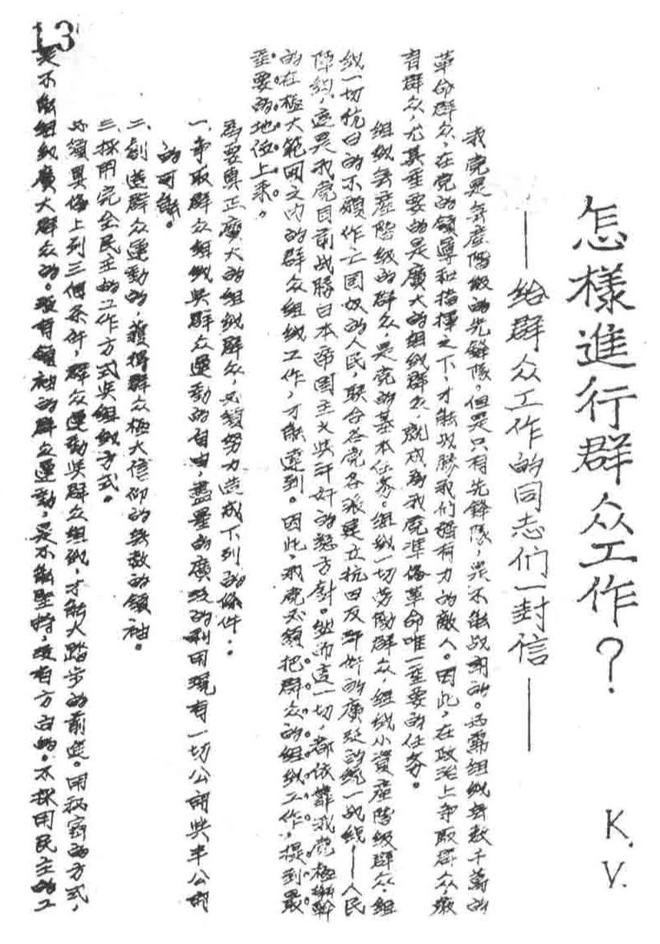 怎樣進行群众工作？
——給群众工作的同志们一封信——
K.V.
我党是無產階級的先鋒隊，但是只有先鋒隊，是不能战鬥的。必需組织無数千萬的
革命群众，在党的領導和指揮之下，才能战勝我们强有力的敵人。因此，在政治上爭取群众，教
育群众，尤其重要的是廣大的組织群众，就成為我党準备革命唯一重要的任务。
組织無產階級的群众，是党的基本任务。組织一切劳動群众，組织小資產階級群众，組
织一切抗日的不願作亡国奴的人民，联合各党各派建立抗日反奸的廣泛的統一战线——人民
陣线，這是我党目前战勝日本帝国主义与汗奸的總方針。然而這一切，都依靠我党極艱幹
的在極大範囲之内的群众組织工作，才能達到。因此，我党必須把群众的組织工作，提到最
重要的地位上来。
為要真正廣大的組织群众，必須努力造成下列的條件：
一、爭取群众組织與群众運動的自由，盡量的廣泛的利用現有一切公開與半公開
的可能。
二、創造群众運動的，獲得群众極大信仰的無数的領袖。
三、採用完全民主的工作方式與組织方式。
必須具备上列三個條件，群众運動與群众組织，才能大踏步的前進。用秘密的方式，
是不能組织廣大群众的。沒有領袖的群众運動，是不能堅持，沒有方向的。不採用民主的工
13